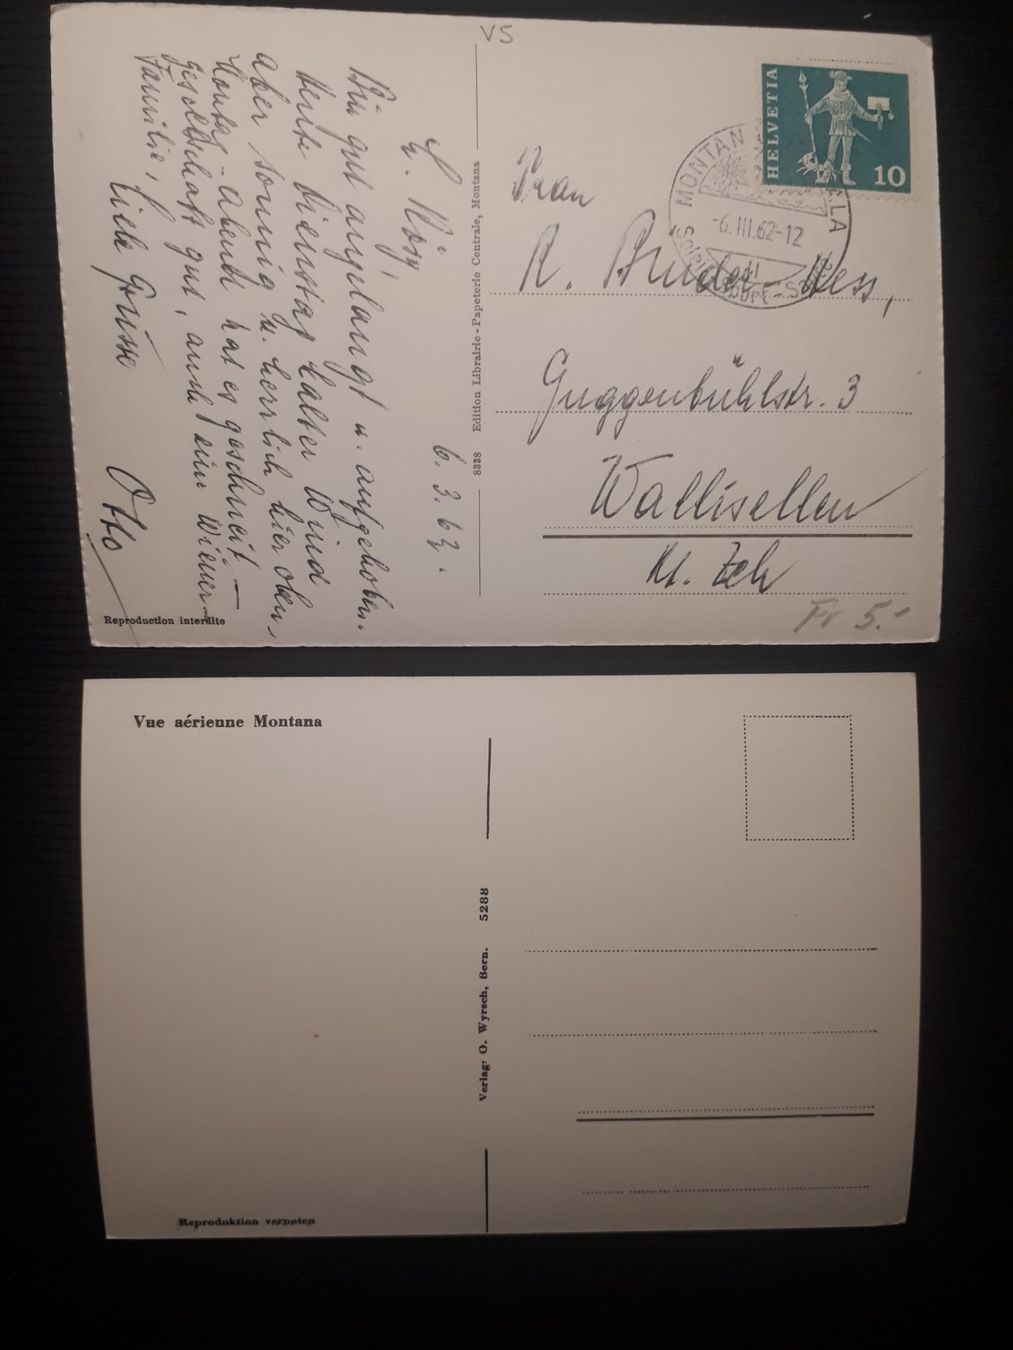 VS
HELVETIA
10
MONTAN LA
-6.III.62-12
6. 3. 62.
L. Rösy,
Bin gut angelangt u. aufgehoben.
Heute Dienstag kalter Wind
aber sonnig u. herrlich hier oben,
Montag-abend hat es geschneit. —
Gesellschaft gut, auch eine Wiener-
Familie,
Liebe Grüsse
Otto
Reproduction interdite
8328 Edition Librairie-Papeterie Centrale, Montana
Frau
R. Bruder-Hess,
Guggenbühlstr. 3
Wallisellen
Kt. Zch
Fr 5.-
Vue aérienne Montana
Verlag: O. Wyrsch, Bern. 5288
Reproduktion verboten